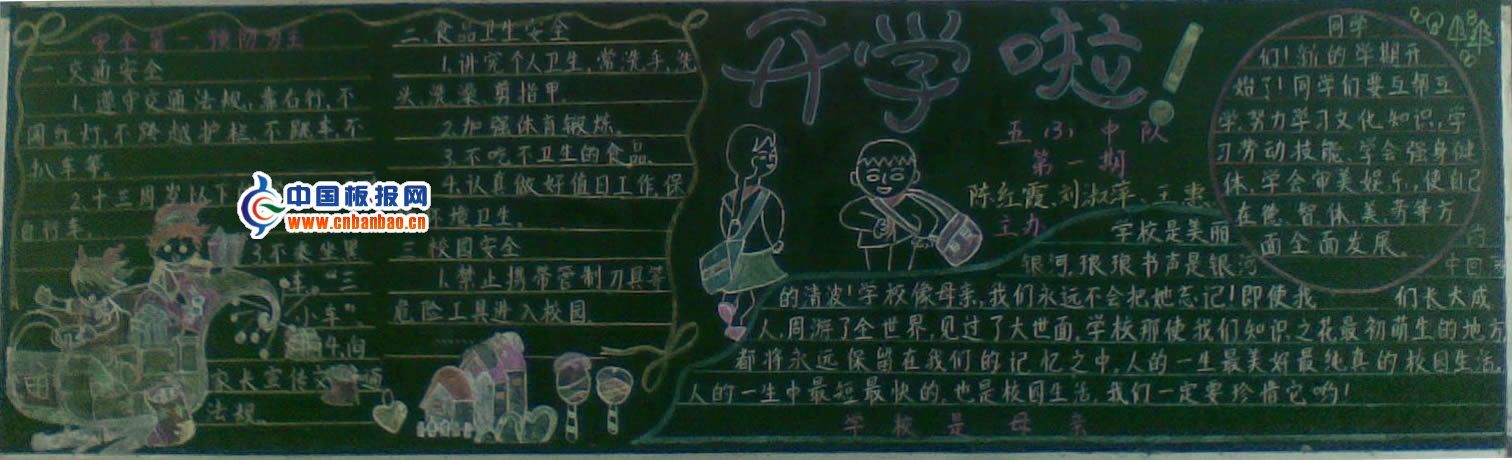 安全第一 预防为主
一.交通安全
1.遵守交通法规,靠右行,不
闯红灯,不跨越护栏,不跳车,不
扒车等。
2.十三周岁以下
自行车。
3.不乘坐黑
车."三
小车"。
4.向
家长宣传交
法规。
二.食品卫生安全
1.讲究个人卫生,常洗手,洗
头,洗澡,剪指甲.
2.加强体育锻炼。
3.不吃不卫生的食品.
4.认真做好值日工作,保
环境卫生。
三.校园安全
1.禁止携带管制刀具等
危险工具进入校园.
中国板报网
www.cnbanbao.cn
开学啦!
五(3)中队
第一期
陈红霞、刘淑萍、王惠
主办
同学
们!新的学期开
始了!同学们要互帮互
学,努力学习文化知识,学
习劳动技能,学会强身健
体,学会审美娱乐,使自己
在德、智、体、美、劳等方
面全面发展。
学校是美丽 的
银河,琅琅书声是银河 中回荡
的清波!学校像母亲,我们永远不会把她忘记!即使我 们长大成
人,周游了全世界,见过了大世面,学校那使我们知识之花最初萌生的地方
都将永远保留在我们的记忆之中,人的一生最美好最纯真的校园生活,
人的一生中最短最快的,也是校园生活,我们一定要珍惜它哟!
学校是母亲